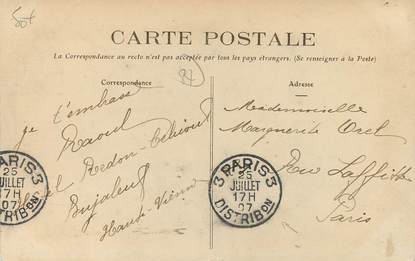 CARTE POSTALE
La Correspondance au recto n'est pas acceptée par tous les pays étrangers. (Se renseigner à la Poste)
Correspondance
je t'embrasse
Raoul
Hôtel Redon
Bujaleuf
Haute-Vienne
Adresse
Mademoiselle
Marguerite
Rue Laffitte
Paris
PARIS 3
25
JUILLET
17H
07
DISTRIBON
3 PARIS 3
25
JUILLET
17H
07
DISTRIBON